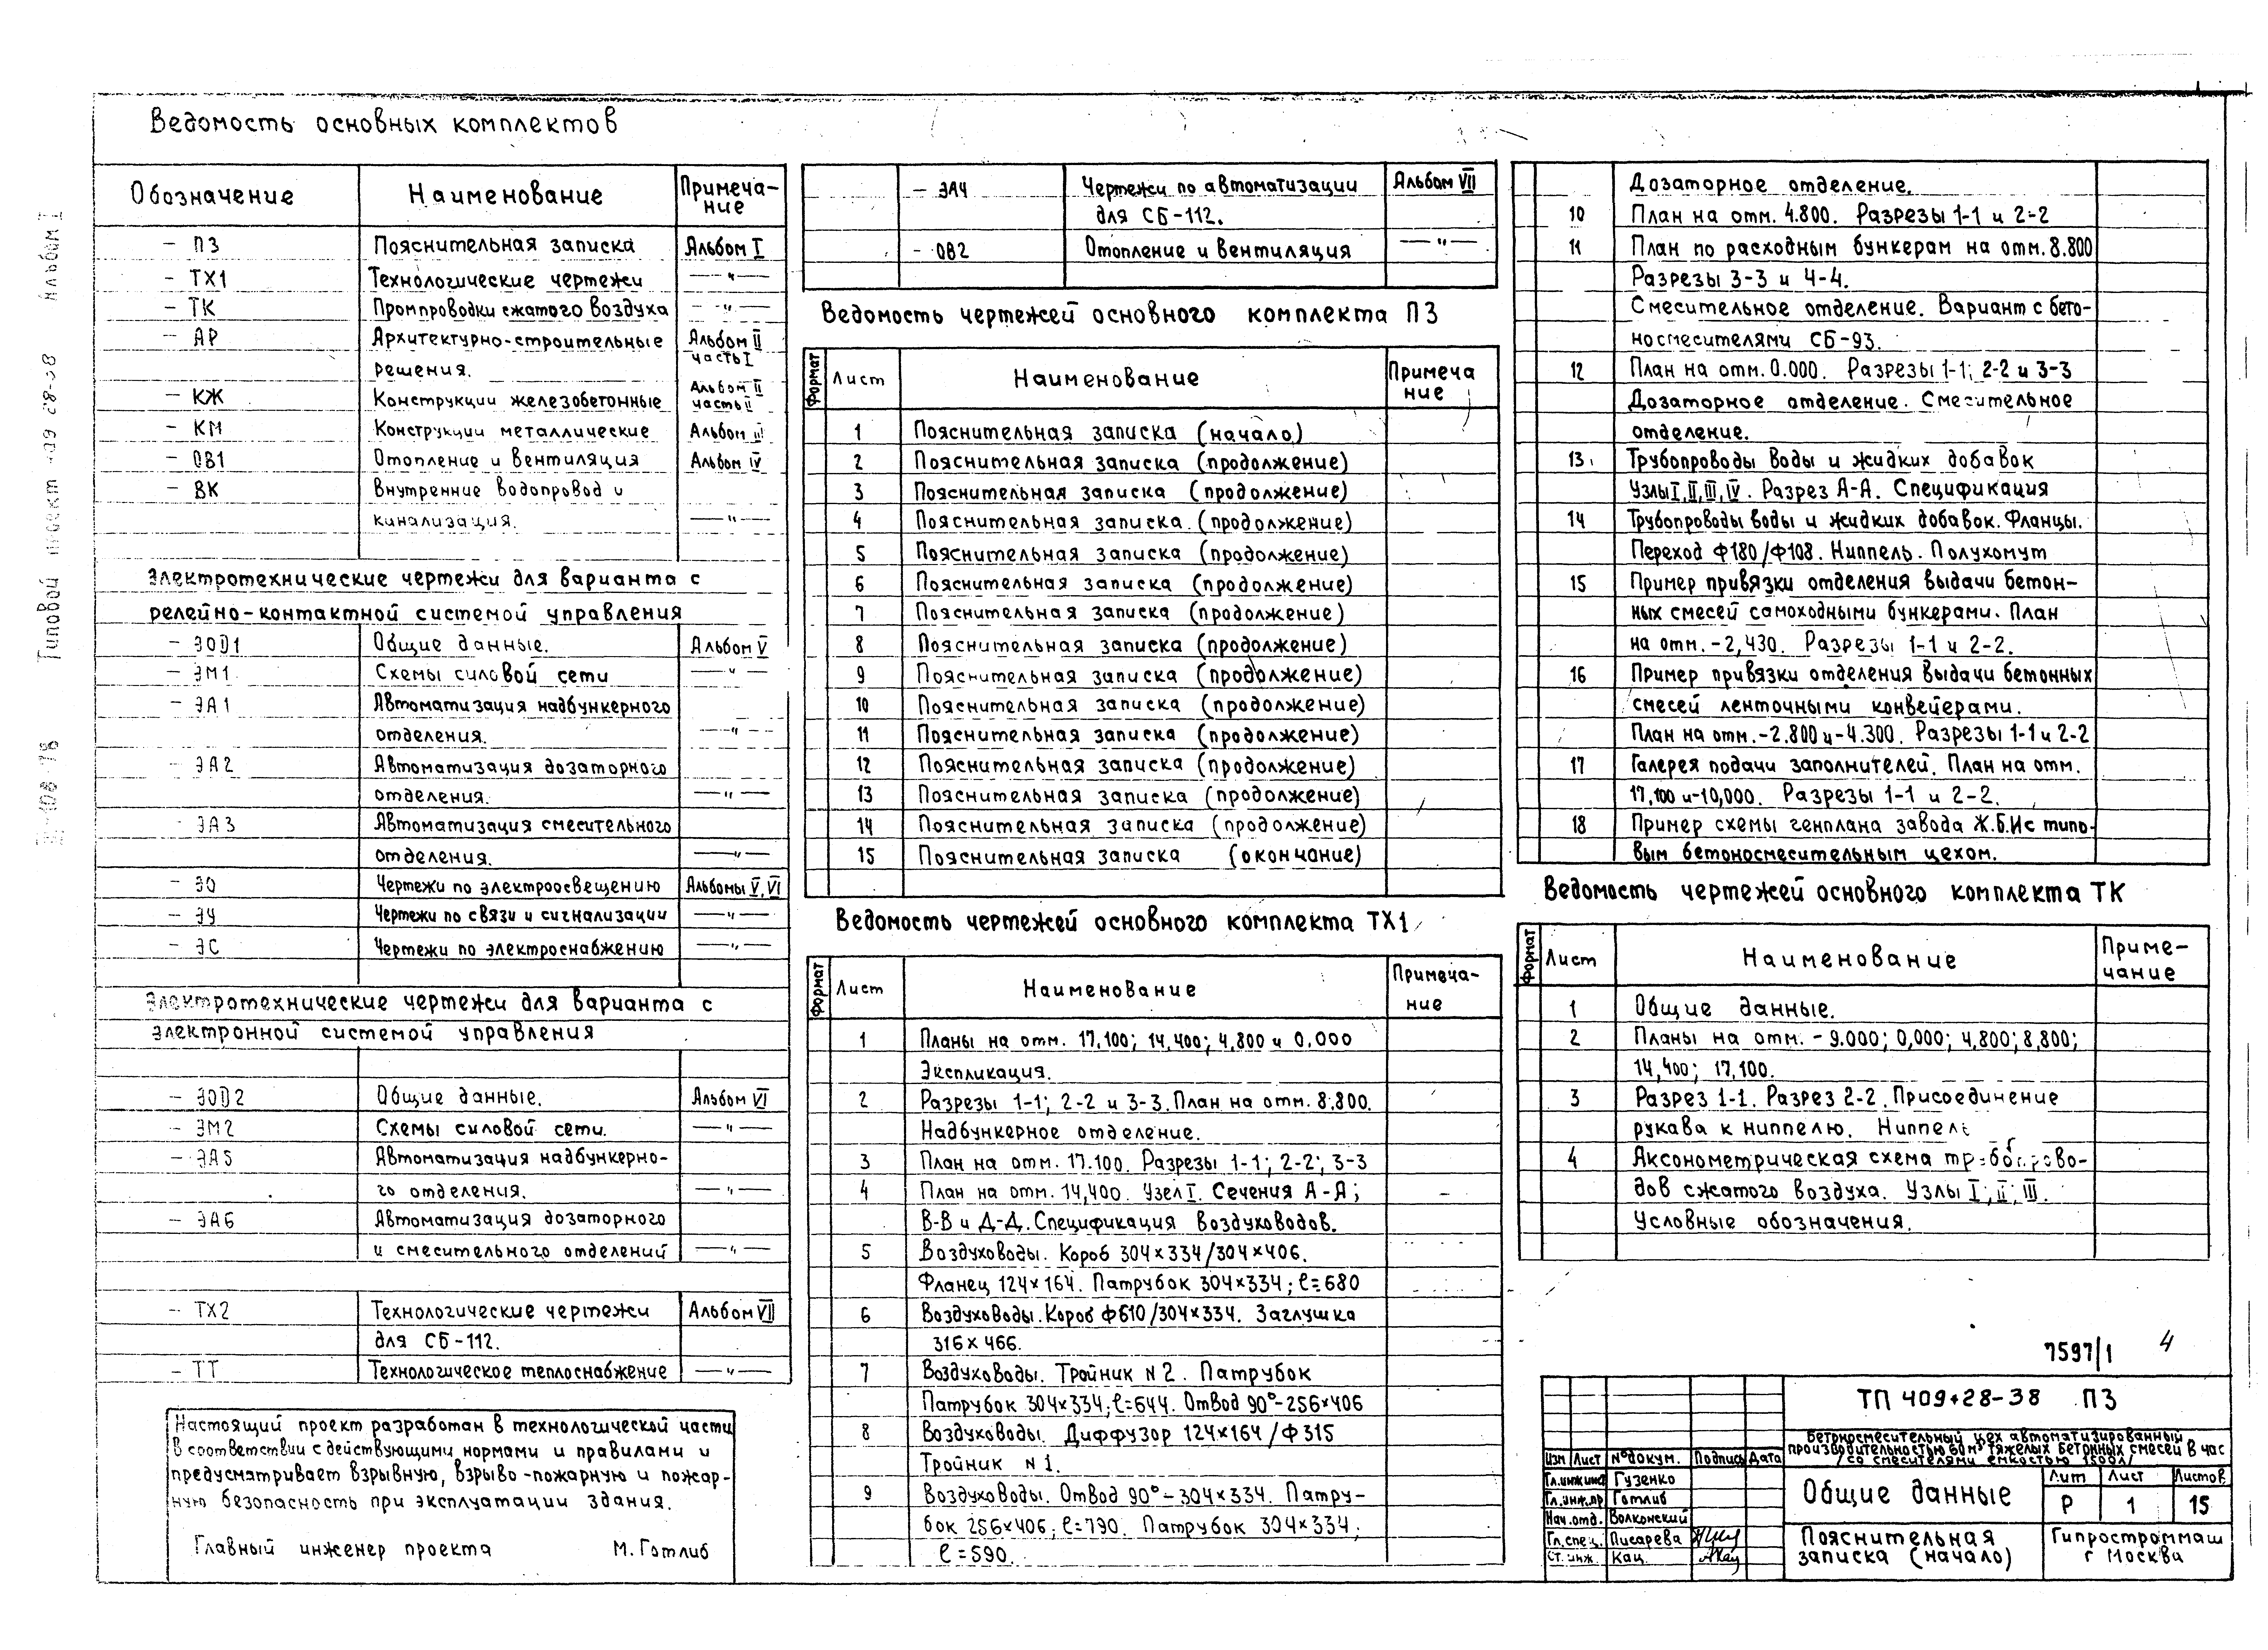 Ведомость основных комплектов
Обозначение Наименование Примеча-
ние
- ПЗ Пояснительная записка Альбом I
- ТХ1 Технологические чертежи —"—
- ТК Промпроводки сжатого воздуха —"—
- АР Архитектурно-строительные Альбом II
часть I
решения.
- КЖ Конструкции железобетонные Альбом II
часть II
- КМ Конструкции металлические Альбом III
- ОВ1 Отопление и вентиляция Альбом IV
- ВК Внутренние водопровод и
канализация. —"—
Электротехнические чертежи для варианта с
релейно-контактной системой управления
- ЭОД1 Общие данные. Альбом V
- ЭМ1 Схемы силовой сети —"—
- ЭА1 Автоматизация надбункерного
отделения. —"—
- ЭА2 Автоматизация дозаторного
отделения. —"—
- ЭА3 Автоматизация смесительного
отделения. —"—
- ЭО Чертежи по электроосвещению Альбомы V, VI
- ЭУ Чертежи по связи и сигнализации —"—
- ЭС Чертежи по электроснабжению —"—
Электротехнические чертежи для варианта с
электронной системой управления
- ЭОД2 Общие данные. Альбом VI
- ЭМ2 Схемы силовой сети. —"—
- ЭА5 Автоматизация надбункерно-
го отделения. —"—
- ЭА6 Автоматизация дозаторного
и смесительного отделений —"—
- ТХ2 Технологические чертежи Альбом VII
для СБ-112.
- ТТ Технологическое теплоснабжение —"—
Настоящий проект разработан в технологической части
в соответствии с действующими нормами и правилами и
предусматривает взрывную, взрыво-пожарную и пожар-
ную безопасность при эксплуатации здания.
Главный инженер проекта М. Готлиб
- ЭА4 Чертежи по автоматизации Альбом VII
для СБ-112.
- ОВ2 Отопление и вентиляция —"—
Ведомость чертежей основного комплекта ПЗ
Формат Лист Наименование Примеча
ние
1 Пояснительная записка (начало)
2 Пояснительная записка (продолжение)
3 Пояснительная записка (продолжение)
4 Пояснительная записка (продолжение)
5 Пояснительная записка (продолжение)
6 Пояснительная записка (продолжение)
7 Пояснительная записка (продолжение)
8 Пояснительная записка (продолжение)
9 Пояснительная записка (продолжение)
10 Пояснительная записка (продолжение)
11 Пояснительная записка (продолжение)
12 Пояснительная записка (продолжение)
13 Пояснительная записка (продолжение)
14 Пояснительная записка (продолжение)
15 Пояснительная записка (окончание)
Ведомость чертежей основного комплекта ТХ1
Формат Лист Наименование Примеча-
ние
1 Планы на отм. 17,100; 14,400; 4,800 и 0,000
Экспликация.
2 Разрезы 1-1; 2-2 и 3-3. План на отм. 8.800.
Надбункерное отделение.
3 План на отм. 17.100. Разрезы 1-1; 2-2; 3-3
4 План на отм. 14,400. Узел I. Сечения А-А;
В-В и Д-Д. Спецификация воздуховодов.
5 Воздуховоды. Короб 304×334/304×406.
Фланец 124×164. Патрубок 304×334; ℓ=680
6 Воздуховоды. Короб Ф610/304×334. Заглушка
316×466.
7 Воздуховоды. Тройник N2. Патрубок
Патрубок 304×334; ℓ=644. Отвод 90°-256×406
8 Воздуховоды. Диффузор 124×164/Ф315
Тройник N1.
9 Воздуховоды. Отвод 90°-304×334. Патру-
бок 256×406; ℓ=790. Патрубок 304×334;
ℓ=590.
Дозаторное отделение.
10 План на отм. 4.800. Разрезы 1-1 и 2-2
11 План по расходным бункерам на отм. 8.800
Разрезы 3-3 и 4-4.
Смесительное отделение. Вариант с бето-
носмесителями СБ-93.
12 План на отм. 0.000. Разрезы 1-1; 2-2 и 3-3
Дозаторное отделение. Смесительное
отделение.
13 Трубопроводы воды и жидких добавок
Узлы I, II, III, IV. Разрез А-А. Спецификация
14 Трубопроводы воды и жидких добавок. Фланцы.
Переход Ф180/Ф108. Ниппель. Полухомут
15 Пример привязки отделения выдачи бетон-
ных смесей самоходными бункерами. План
на отм. -2,430. Разрезы 1-1 и 2-2.
16 Пример привязки отделения выдачи бетонных
смесей ленточными конвейерами.
План на отм. -2.800 и -4.300. Разрезы 1-1 и 2-2
17 Галерея подачи заполнителей. План на отм.
17,100 и -10,000. Разрезы 1-1 и 2-2.
18 Пример схемы генплана завода Ж.Б.И с типо-
вым бетоносмесительным цехом.
Ведомость чертежей основного комплекта ТК
Формат Лист Наименование Приме-
чание
1 Общие данные.
2 Планы на отм. -9.000; 0,000; 4,800; 8,800;
14,400; 17,100.
3 Разрез 1-1. Разрез 2-2. Присоединение
рукава к ниппелю. Ниппель
4 Аксонометрическая схема трубопрово-
дов сжатого воздуха. Узлы I, II, III.
Условные обозначения.
7597/1 4
ТП 409-28-38 ПЗ
Бетоносмесительный цех автоматизированный
производительностью 60 м³ тяжелых бетонных смесей в час
/со смесителями емкостью 1500л/
Изм Лист № докум. Подпись Дата
Гл.инж.инст Гузенко
Гл.инж.пр Готлиб
Нач.отд. Волконский
Гл.спец. Писарева
Ст.инж. Кац
Общие данные
Лит Лист Листов
Р 1 15
Пояснительная
записка (начало)
Гипростроммаш
г Москва
Типовой проект 409-28-38 Альбом I